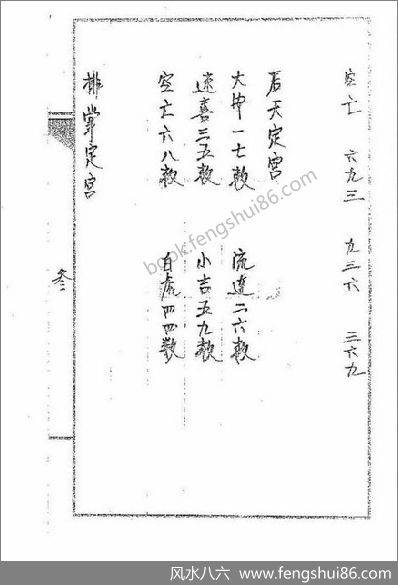 空亡 六九三 九三六 三六九
后天定宫
大申一七数 流连二六数
速喜三五数 小吉五九数
空亡六八数 白虎四四数
排掌定宫
叁
book.fengshui86.com
风水八六 www.fengshui86.com